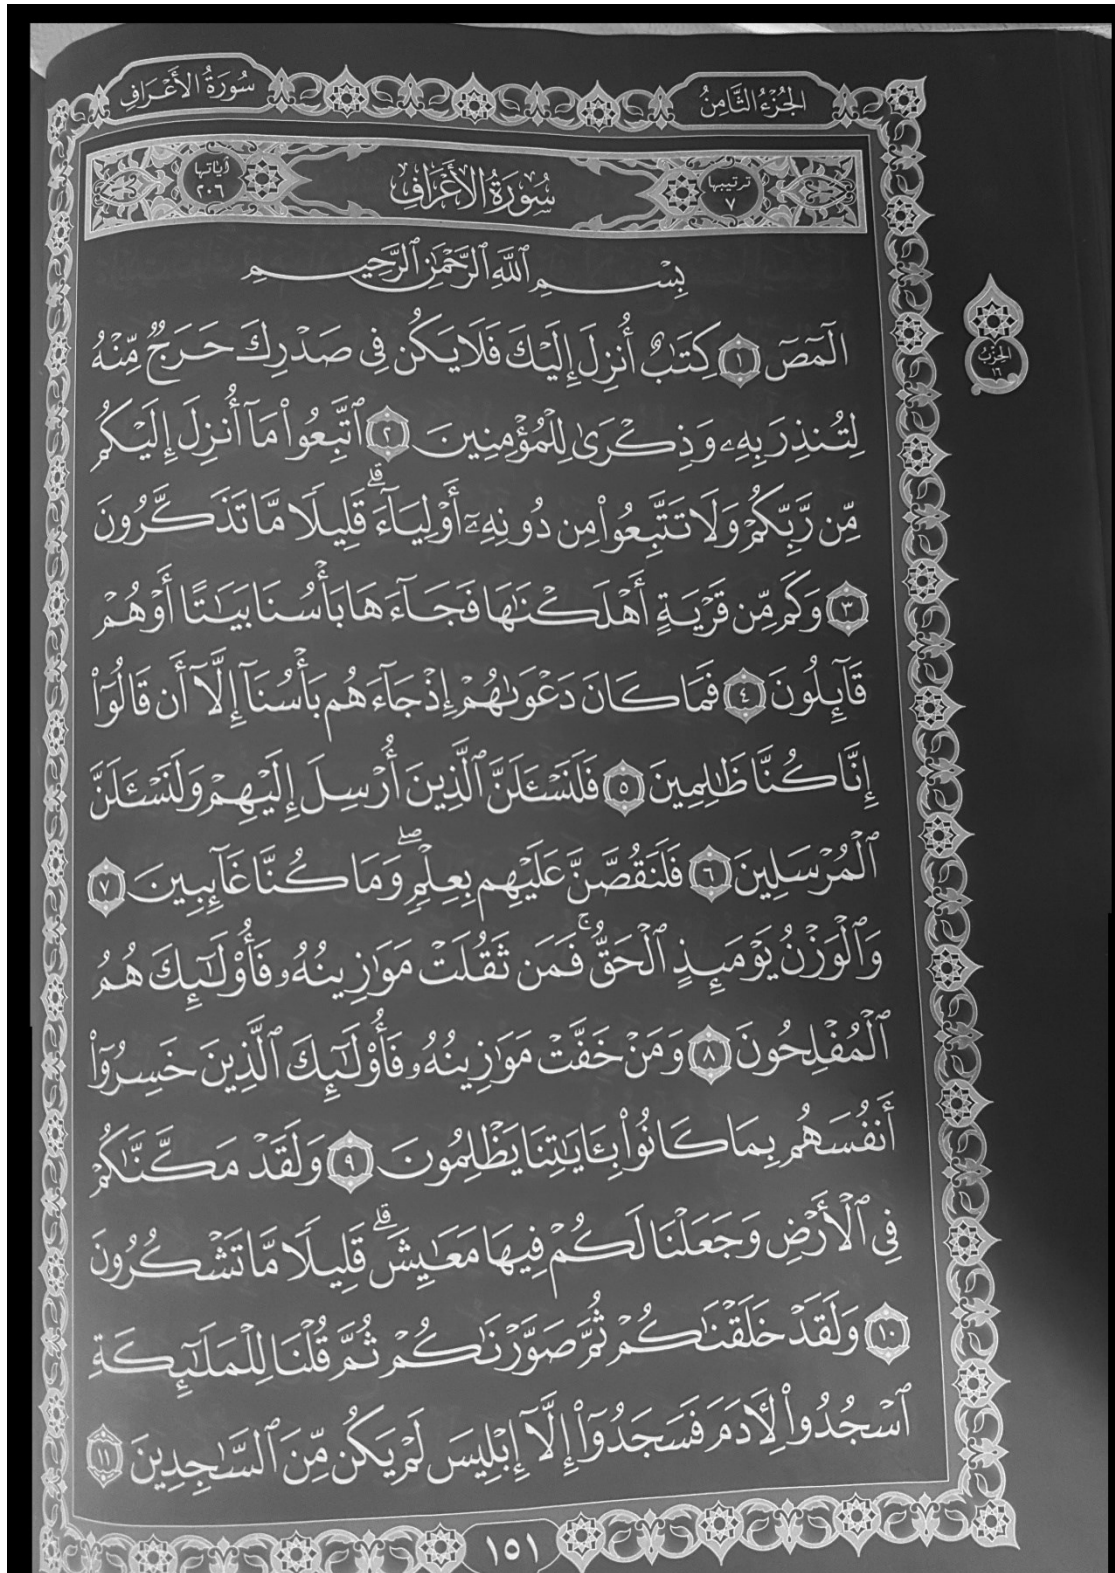 الجُزْءُ الثَّامِنُ
سُورَةُ الأَعْرَافِ
ترتيبها ٧
سُورَةُ الأَعْرَافِ
آياتها ٢٠٦
بِسْمِ ٱللَّهِ ٱلرَّحْمَٰنِ ٱلرَّحِيمِ
الحِزْبُ ١٦
الٓمٓصٓ ١ كِتَٰبٌ أُنزِلَ إِلَيْكَ فَلَا يَكُن فِي صَدْرِكَ حَرَجٌ مِّنْهُ
لِتُنذِرَ بِهِۦ وَذِكْرَىٰ لِلْمُؤْمِنِينَ ٢ ٱتَّبِعُوا۟ مَآ أُنزِلَ إِلَيْكُم
مِّن رَّبِّكُمْ وَلَا تَتَّبِعُوا۟ مِن دُونِهِۦٓ أَوْلِيَآءَ ۗ قَلِيلًا مَّا تَذَكَّرُونَ
٣ وَكَم مِّن قَرْيَةٍ أَهْلَكْنَٰهَا فَجَآءَهَا بَأْسُنَا بَيَٰتًا أَوْ هُمْ
قَآئِلُونَ ٤ فَمَا كَانَ دَعْوَىٰهُمْ إِذْ جَآءَهُم بَأْسُنَآ إِلَّآ أَن قَالُوٓا۟
إِنَّا كُنَّا ظَٰلِمِينَ ٥ فَلَنَسْـَٔلَنَّ ٱلَّذِينَ أُرْسِلَ إِلَيْهِمْ وَلَنَسْـَٔلَنَّ
ٱلْمُرْسَلِينَ ٦ فَلَنَقُصَّنَّ عَلَيْهِم بِعِلْمٍ ۖ وَمَا كُنَّا غَآئِبِينَ ٧
وَٱلْوَزْنُ يَوْمَئِذٍ ٱلْحَقُّ ۚ فَمَن ثَقُلَتْ مَوَٰزِينُهُۥ فَأُو۟لَٰٓئِكَ هُمُ
ٱلْمُفْلِحُونَ ٨ وَمَنْ خَفَّتْ مَوَٰزِينُهُۥ فَأُو۟لَٰٓئِكَ ٱلَّذِينَ خَسِرُوٓا۟
أَنفُسَهُم بِمَا كَانُوا۟ بِـَٔايَٰتِنَا يَظْلِمُونَ ٩ وَلَقَدْ مَكَّنَّٰكُمْ
فِي ٱلْأَرْضِ وَجَعَلْنَا لَكُمْ فِيهَا مَعَٰيِشَ ۗ قَلِيلًا مَّا تَشْكُرُونَ
١٠ وَلَقَدْ خَلَقْنَٰكُمْ ثُمَّ صَوَّرْنَٰكُمْ ثُمَّ قُلْنَا لِلْمَلَٰٓئِكَةِ
ٱسْجُدُوا۟ لِـَٔادَمَ فَسَجَدُوٓا۟ إِلَّآ إِبْلِيسَ لَمْ يَكُن مِّنَ ٱلسَّٰجِدِينَ ١١
١٥١